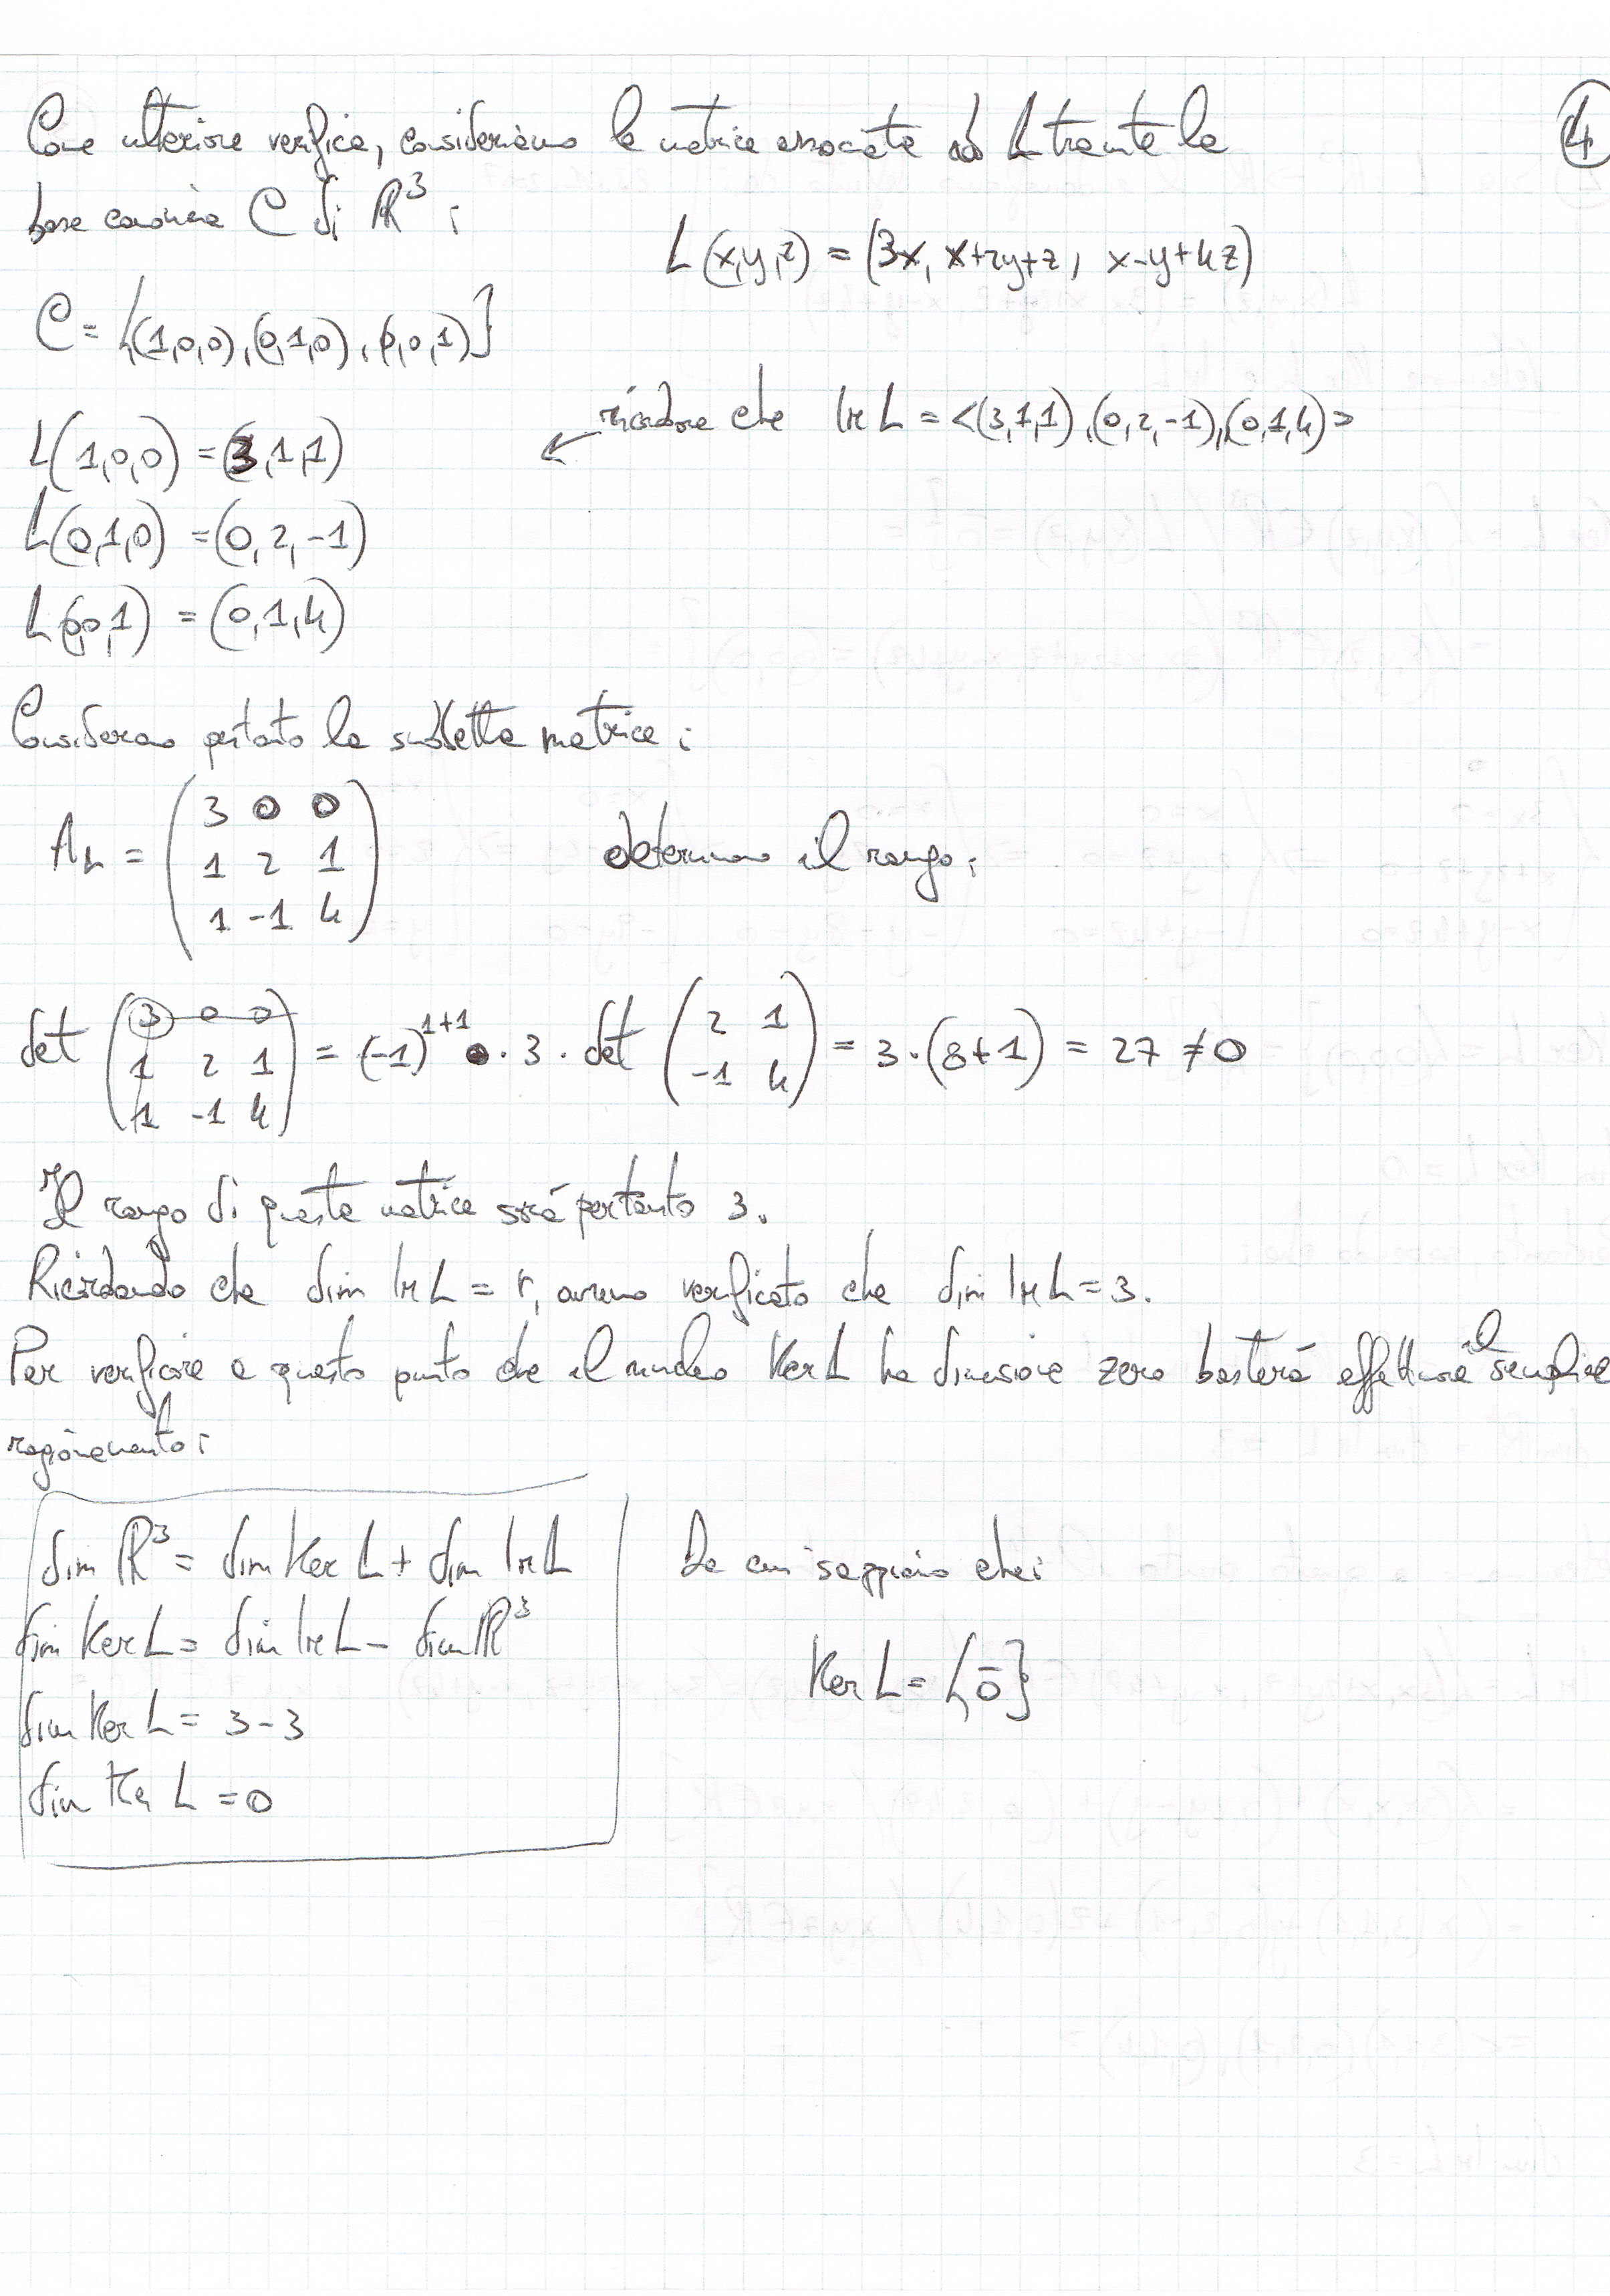 Come ulteriore verifica, consideriamo la matrice associata ad L tramite la
4
base canonica C di R³:
L(x,y,z) = (3x, x+2y+z, x-y+4z)
C = {(1,0,0),(0,1,0),(0,0,1)}
ricordare che Im L = <(3,1,1),(0,2,-1),(0,1,4)>
L(1,0,0) = (3,1,1) ↙
L(0,1,0) = (0,2,-1)
L(0,0,1) = (0,1,4)
Consideriamo pertanto la suddetta matrice:
A_L = ( 3 0 0
1 2 1
1 -1 4 )
determiniamo il rango:
det ( 3 0 0
1 2 1
1 -1 4 ) = (-1)¹⁺¹ · 3 · det ( 2 1
-1 4 ) = 3·(8+1) = 27 ≠ 0
Il rango di questa matrice sarà pertanto 3.
Ricordando che dim Im L = r, avremo verificato che dim Im L = 3.
Per verificare a questo punto che il nucleo Ker L ha dimensione zero basterà effettuare il semplice
ragionamento:
dim R³ = dim Ker L + dim Im L
Da cui sappiamo che:
dim Ker L = dim Im L - dim R³
Ker L = {0̄}
dim Ker L = 3 - 3
dim Ker L = 0